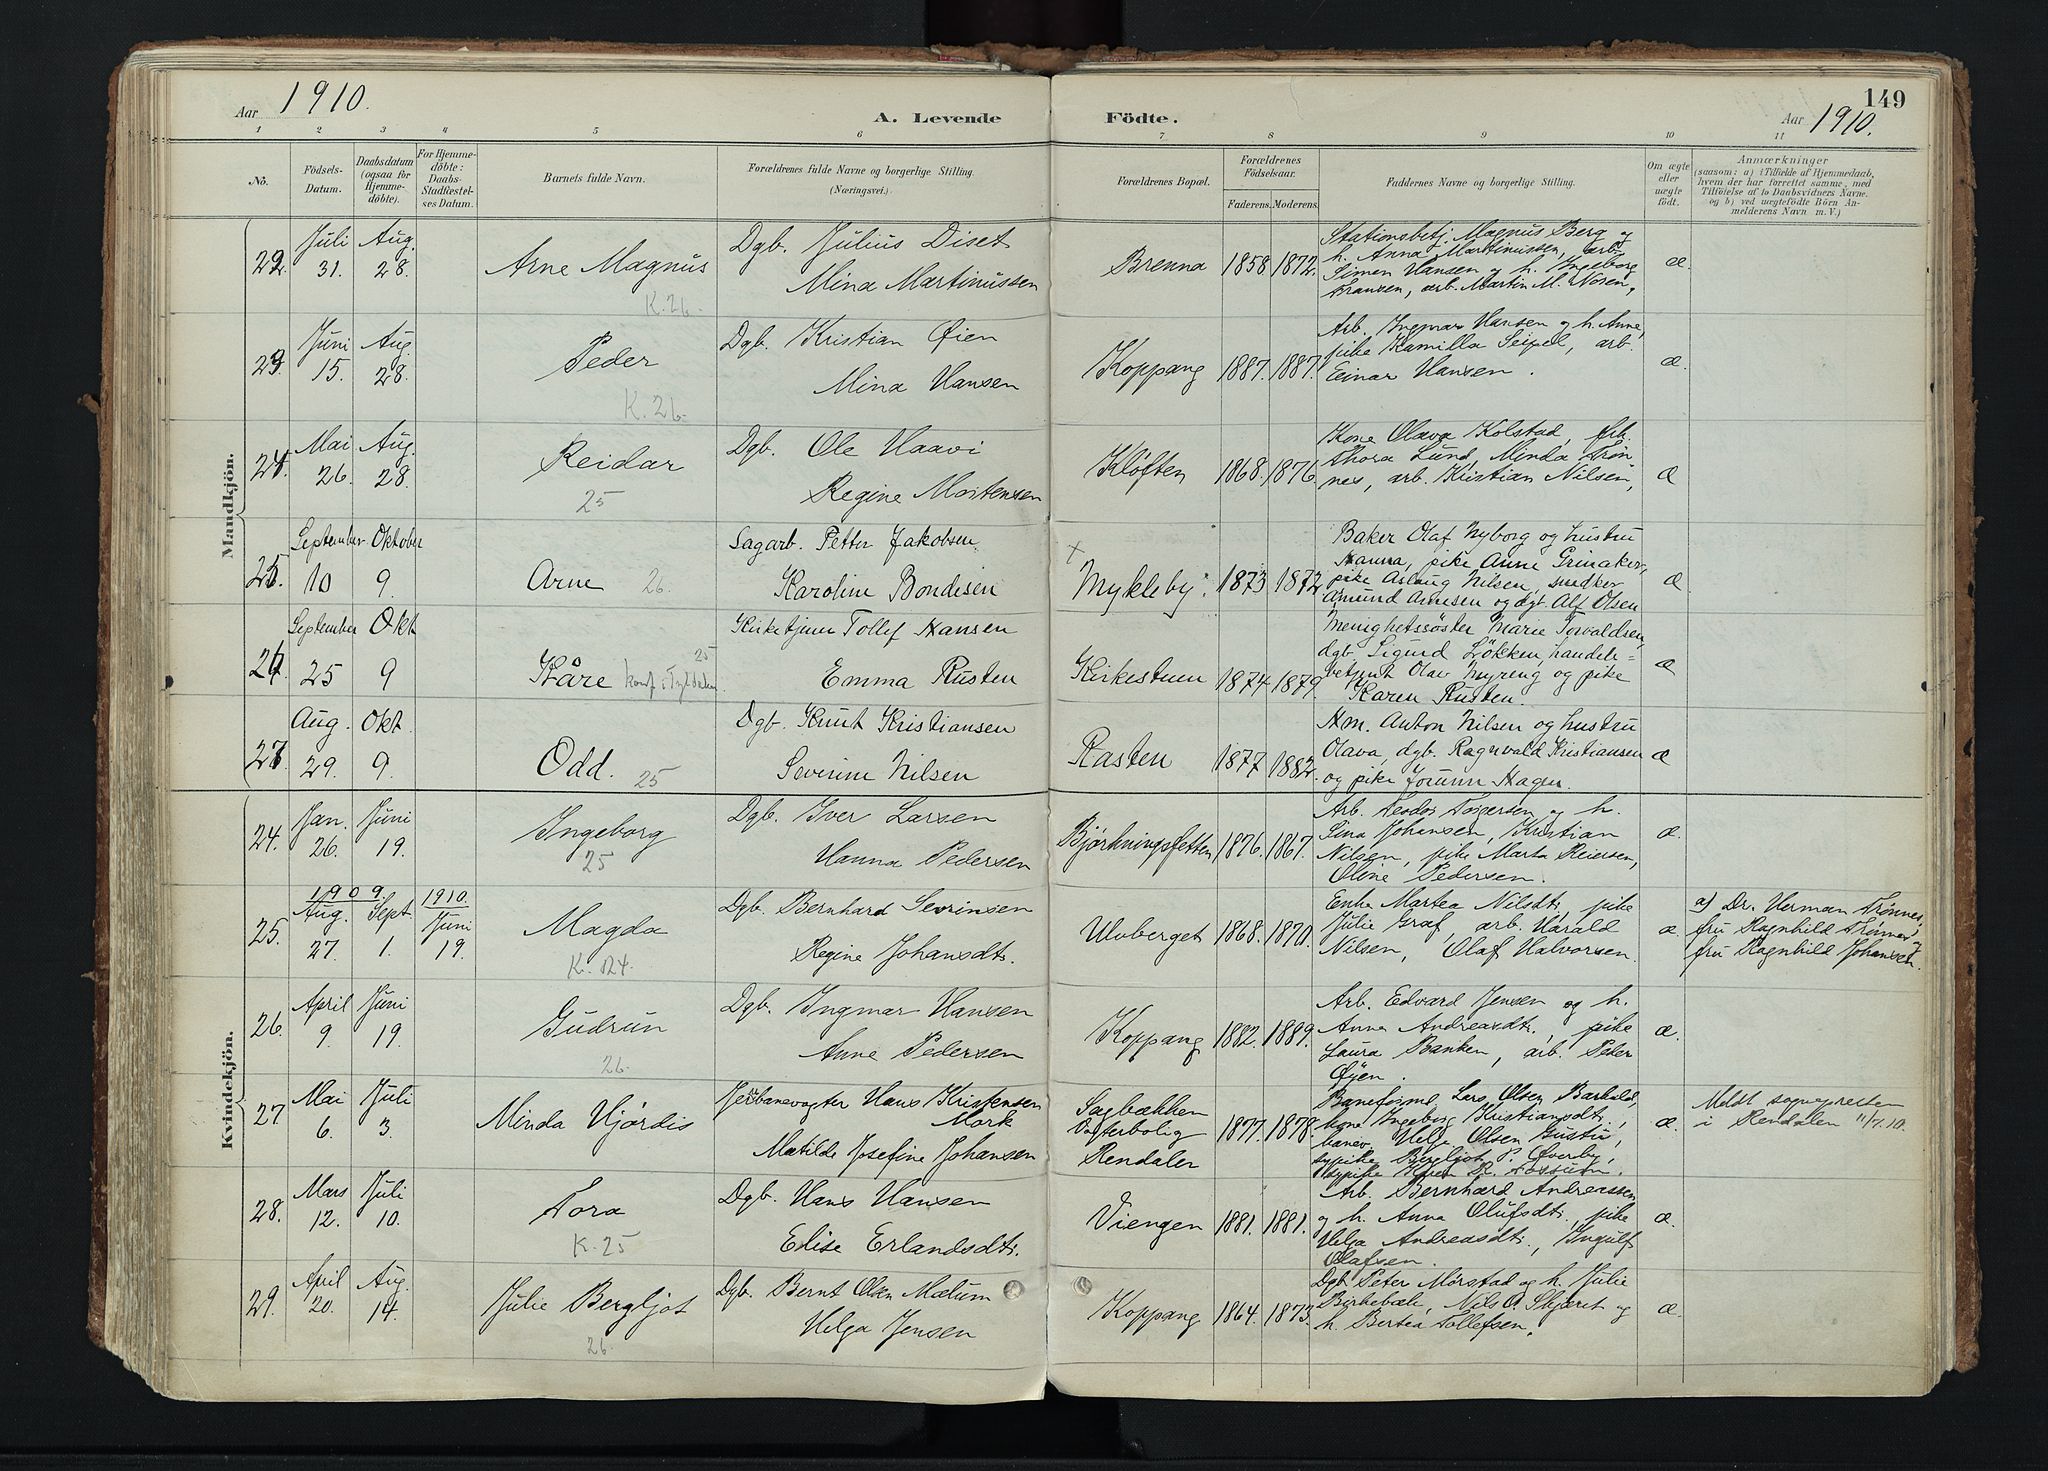 Aar 1910.
A. Levende Födte.
149
Aar 1910.
1 2 3 4 5 6 7 8 9 10 11
No.
Födsels-Datum.
Daabsdatum (ogsaa for Hjemme-döbte).
For Hjemme-döbte: Daabs-Stadfæstel-ses Datum.
Barnets fulde Navn.
Forældrenes fulde Navne og borgerlige Stilling.
(Næringsvei.)
Forældrenes Bopæl.
Forældrenes Födselsaar.
Faderens. Moderens.
Faddernes Navne og borgerlige Stilling.
Om ægte eller uægte födt.
Anmærkninger
(saasom: a) i Tilfælde af Hjemmedaab,
hvem der har forrettet samme, med
Tilföielse af to Daabsvidners Navne.
og b) ved uægtefödte Börn An-
melderens Navn m. V.)
Mandkjön.
22. Juli 31. Aug. 28. Arne Magnus K. 26.
Dgb. Julius Diset
Mina Martinussen
Brenna 1858 1872.
Stationsbetj. Magnus Berg og
h. Anna Martinussen, arb.
Simen Hansen og h. Ingeborg
Fransen, arb. Martin M. Noren.
æ.
23. Juni 15. Aug. 28. Peder K. 26.
Dgb. Kristian Øien
Mina Hansen
Koppang 1887. 1887.
Arb. Ingmar Hansen og h. Anne,
pike Kamilla Seipel, arb.
Einar Hansen.
æ.
24. Mai 26. Aug. 28. Reidar 25
Dgb. Ole Haavi
Regine Mortensen
Kløften 1868. 1876.
Kone Olava Kolstad, frk.
Thora Lund, Minda Trøn
nes, arb. Kristian Nilsen,
æ
25. September 10 Oktober 9. Arne 26.
Sagarb. Petter Jakobsen
Karoline Bondesen
+
Mykleby. 1873 1872
Baker Olaf Nyborg og hustru
Hanna, pike Anne Grinaker,
pike Aslaug Nilsen, snedker
Amund Arnesen og dgt. Alf Olsen
æ
26. September 25 Okt 9 Kåre 25
Kirketjener Tollef Hansen
Emma Rusten
Kirkestuen 1874 1879
Menighetssöster Marie Torvaldsen,
dgb Sigurd Løkken, handels=
betjent Olav Myreng og pike
Karen Rusten.
æ
27. Aug. 29. Okt. 9. Odd. 25
Dgb. Knut Kristiansen
Severine Nilsen
Rasten 1877 1882.
Hm. Anton Nilsen og hustru
Olava, dgb. Ragnvald Kristiansen
og pike Jorunn Hagen.
æ
Kvindekjön.
24. Jan. 26. Juni 19. Ingeborg 25
Dgb. Iver Larsen
Hanna Pedersen
Bjørkningsfetten 1876. 1867.
Arb. Teodor Torgersen og h.
Lina Johansen, Kristian
Nilsen, pike Marta Reiersen,
Oline Pedersen.
æ.
25. 1909 Aug. 27. Sept. 1. 1910. Juni 19. Magda K. 24.
Dgb. Bernhard Sevrinsen
Regine Johansdtr.
Ulvberget 1868. 1870.
Enke Martea Nilsdtr, pike
Julie Graf, arb. Harald
Nilsen, Olaf Halvorsen.
æ.
a) Dr. Herman Trønnes,
fru Ragnhild Trønnes og
fru Ragnhild Johansen.
26. April 9. Juni 19. Gudrun 26.
Dgb. Ingmar Hansen
Anne Pedersen
Koppang 1882. 1889.
Arb. Edvard Jensen og h.
Anna Andreasdtr., pike
Laura Banken, arb. Peter
Øjen.
æ.
27 Mai 6. Juli 3. Minda Hjördis
Jernbanevogter Hans Kristensen
Mork
Matilde Josefine Johansen
Sagbækken
Vogterbolig
Rendalen
1877. 1878.
Baneformd. Lars Olsen Barkald,
kone Ingeborg Kristiansdtr,
banev. Helge Olsen
sypike Bergljot P. Øverby,
sypike Karen R. Fossum.
æ.
Meldt sognepresten
i Rendalen 11/7.10.
28. Mars 12. Juli 10. Tora K. 25
Dgb. Hans Hansen
Elise Erlandsdtr.
Viengen 1881. 1881.
Arb. Bernhard Andreassen
og h. Anna Olufsdtr, pike
Helga Andreasdtr., Ingulf
Olafsen.
æ.
29. April 20. Aug. 14. Julie Bergljot 26.
Dgb. Bernt Olsen Mælum
Helga Jensen
Koppang 1864. 1873.
Dgb. Peter Mørstad og h. Julie
Birkebæk, Nils O. Skjæret og
h. Bertea Tollefsen.
æ.